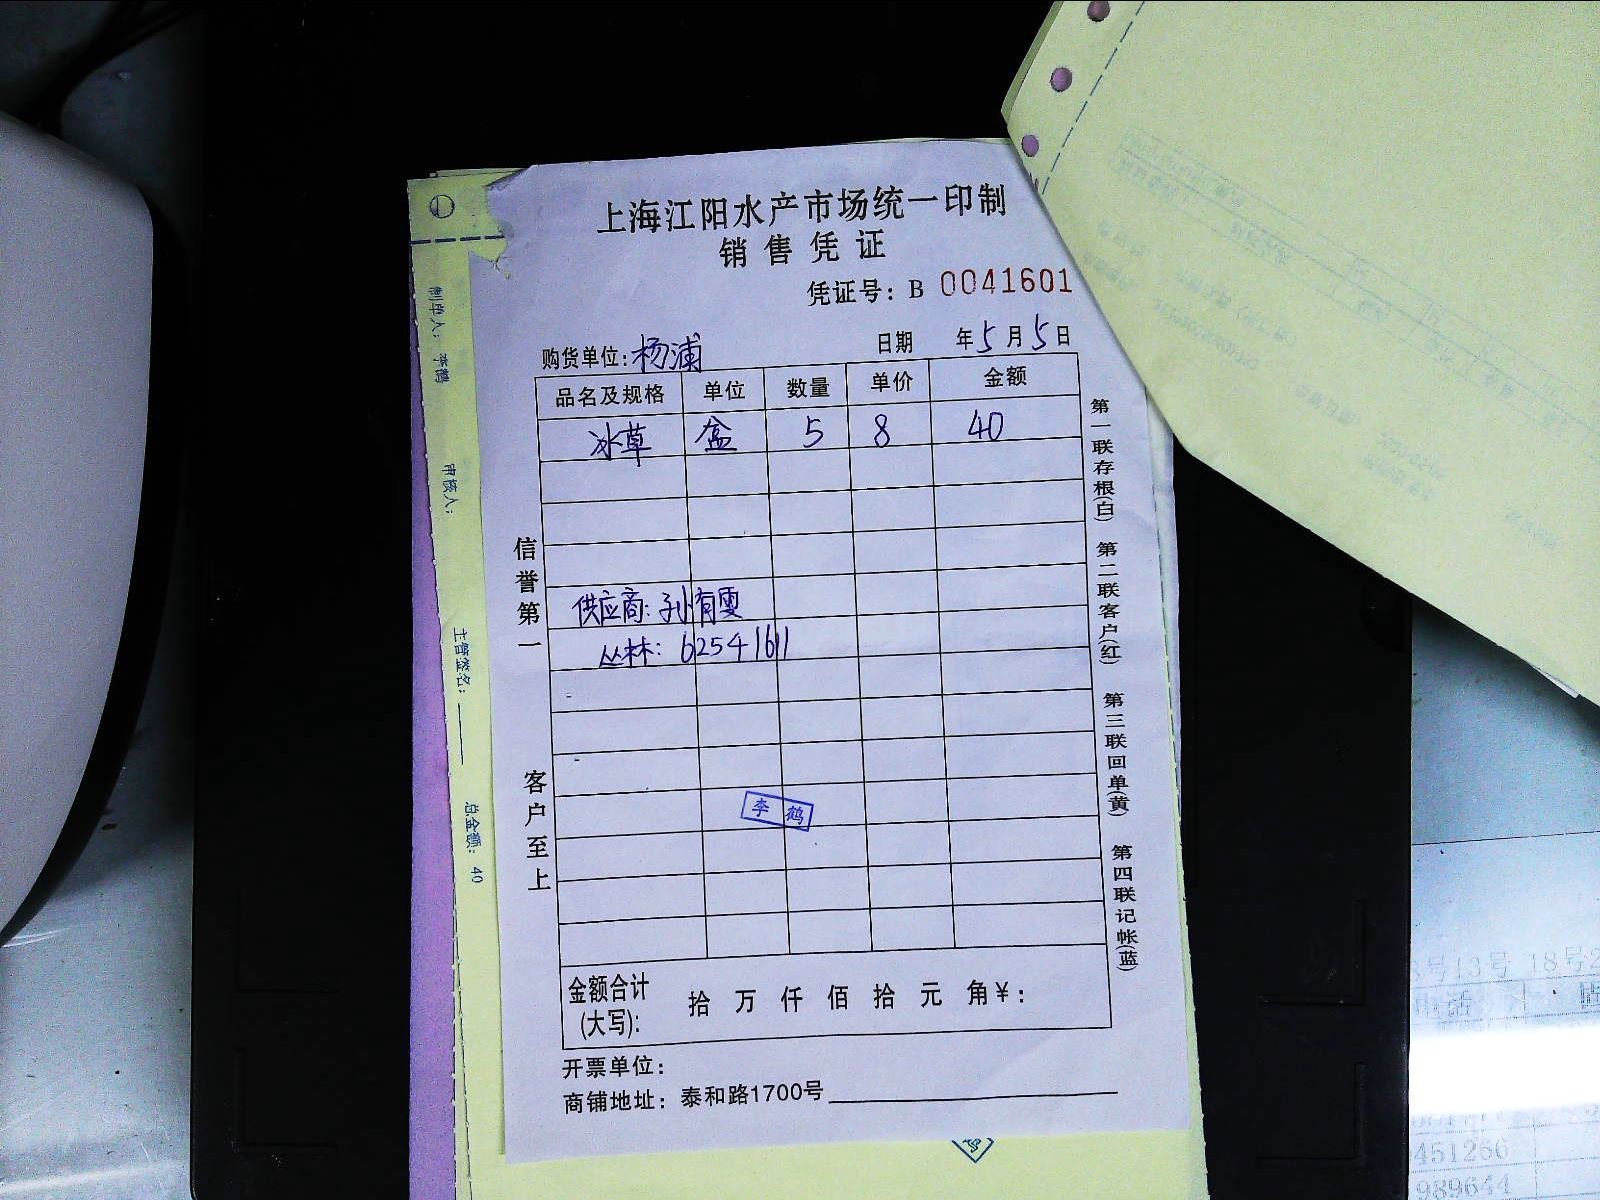 上海江阳水产市场统一印制
销售凭证
凭证号：B 0041601
购货单位：杨浦 日期 年5月5日
品名及规格 单位 数量 单价 金额
冰草 盒 5 8 40
供应商：孙有雯
丛林：62541611
李鹤
金额合计(大写)： 拾 万 仟 佰 拾 元 角￥：
开票单位：
商铺地址：泰和路1700号
信誉第一
客户至上
第一联存根(白) 第二联客户(红) 第三联回单(黄) 第四联记帐(蓝)
制单人：李鹤
审核人：
主管签名：
总金额：40
8号13号 18号2
电话
451256
989644